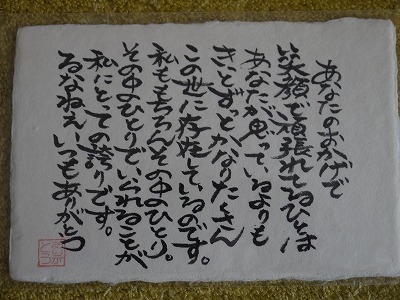 あなたのおかげで
いい笑顔で頑張れてるひとは
あなたが思っているよりも
きっとずっとかなりたくさん
この世に存在しているのです。
私ももちろんその中のひとり。
その中のひとりでいられることが
私にとっての誇りです。
るなねぇいつもありがとう